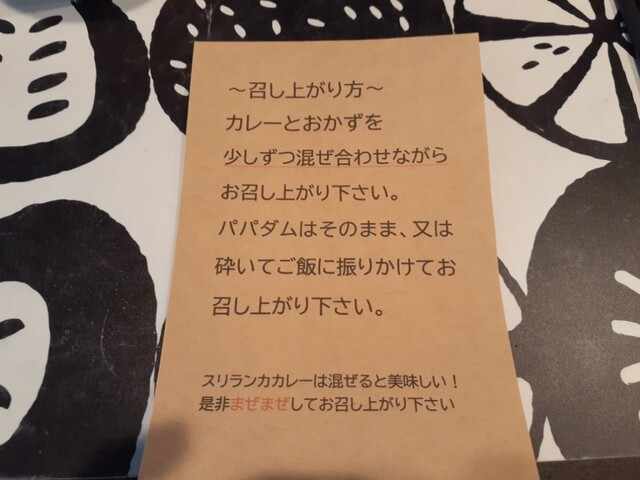 ～召し上がり方～
カレーとおかずを
少しずつ混ぜ合わせながら
お召し上がり下さい。
パパダムはそのまま、又は
砕いてご飯に振りかけてお
召し上がり下さい。
スリランカカレーは混ぜると美味しい！
是非まぜまぜしてお召し上がり下さい